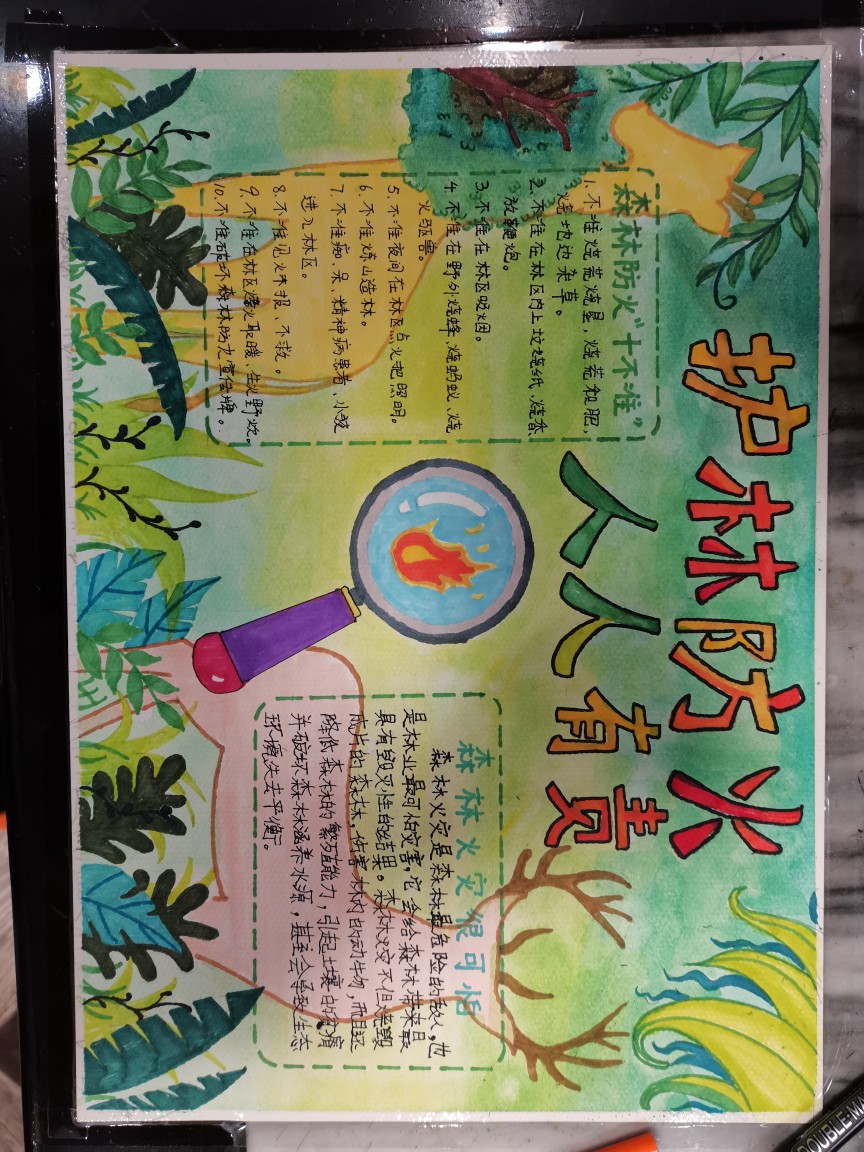 护林防火
人人有责
森林防火“十不准”
1.不准烧荒烧垦，烧荒和肥，
烧地边杂草。
2.不准在林区内上坟烧纸、烧香
放鞭炮。
3.不准在林区吸烟。
4.不准在野外烧蜂、烧蚂蚁、烧
火驱兽。
5.不准夜间在林区点火把照明。
6.不准炼山造林。
7.不准痴、呆，精神病患者、小孩
进入林区。
8.不准见火不报，不救。
9.不准在林区烧火取暖、生火野炊。
10.不准破坏森林防火宣传牌。
森林火灾很可怕
森林火灾是森林最危险的敌人，也
是林业最可怕灾害，它会给森林带来最
具有毁灭性的结果。森林火灾不但烧毁
成片的森林，伤害林内的动生物，而且还
降低森林的繁殖能力，引起土壤的贫瘠
并破坏森林涵养水源，甚至会导致生态
环境失去平衡。
DOUBLE-MA